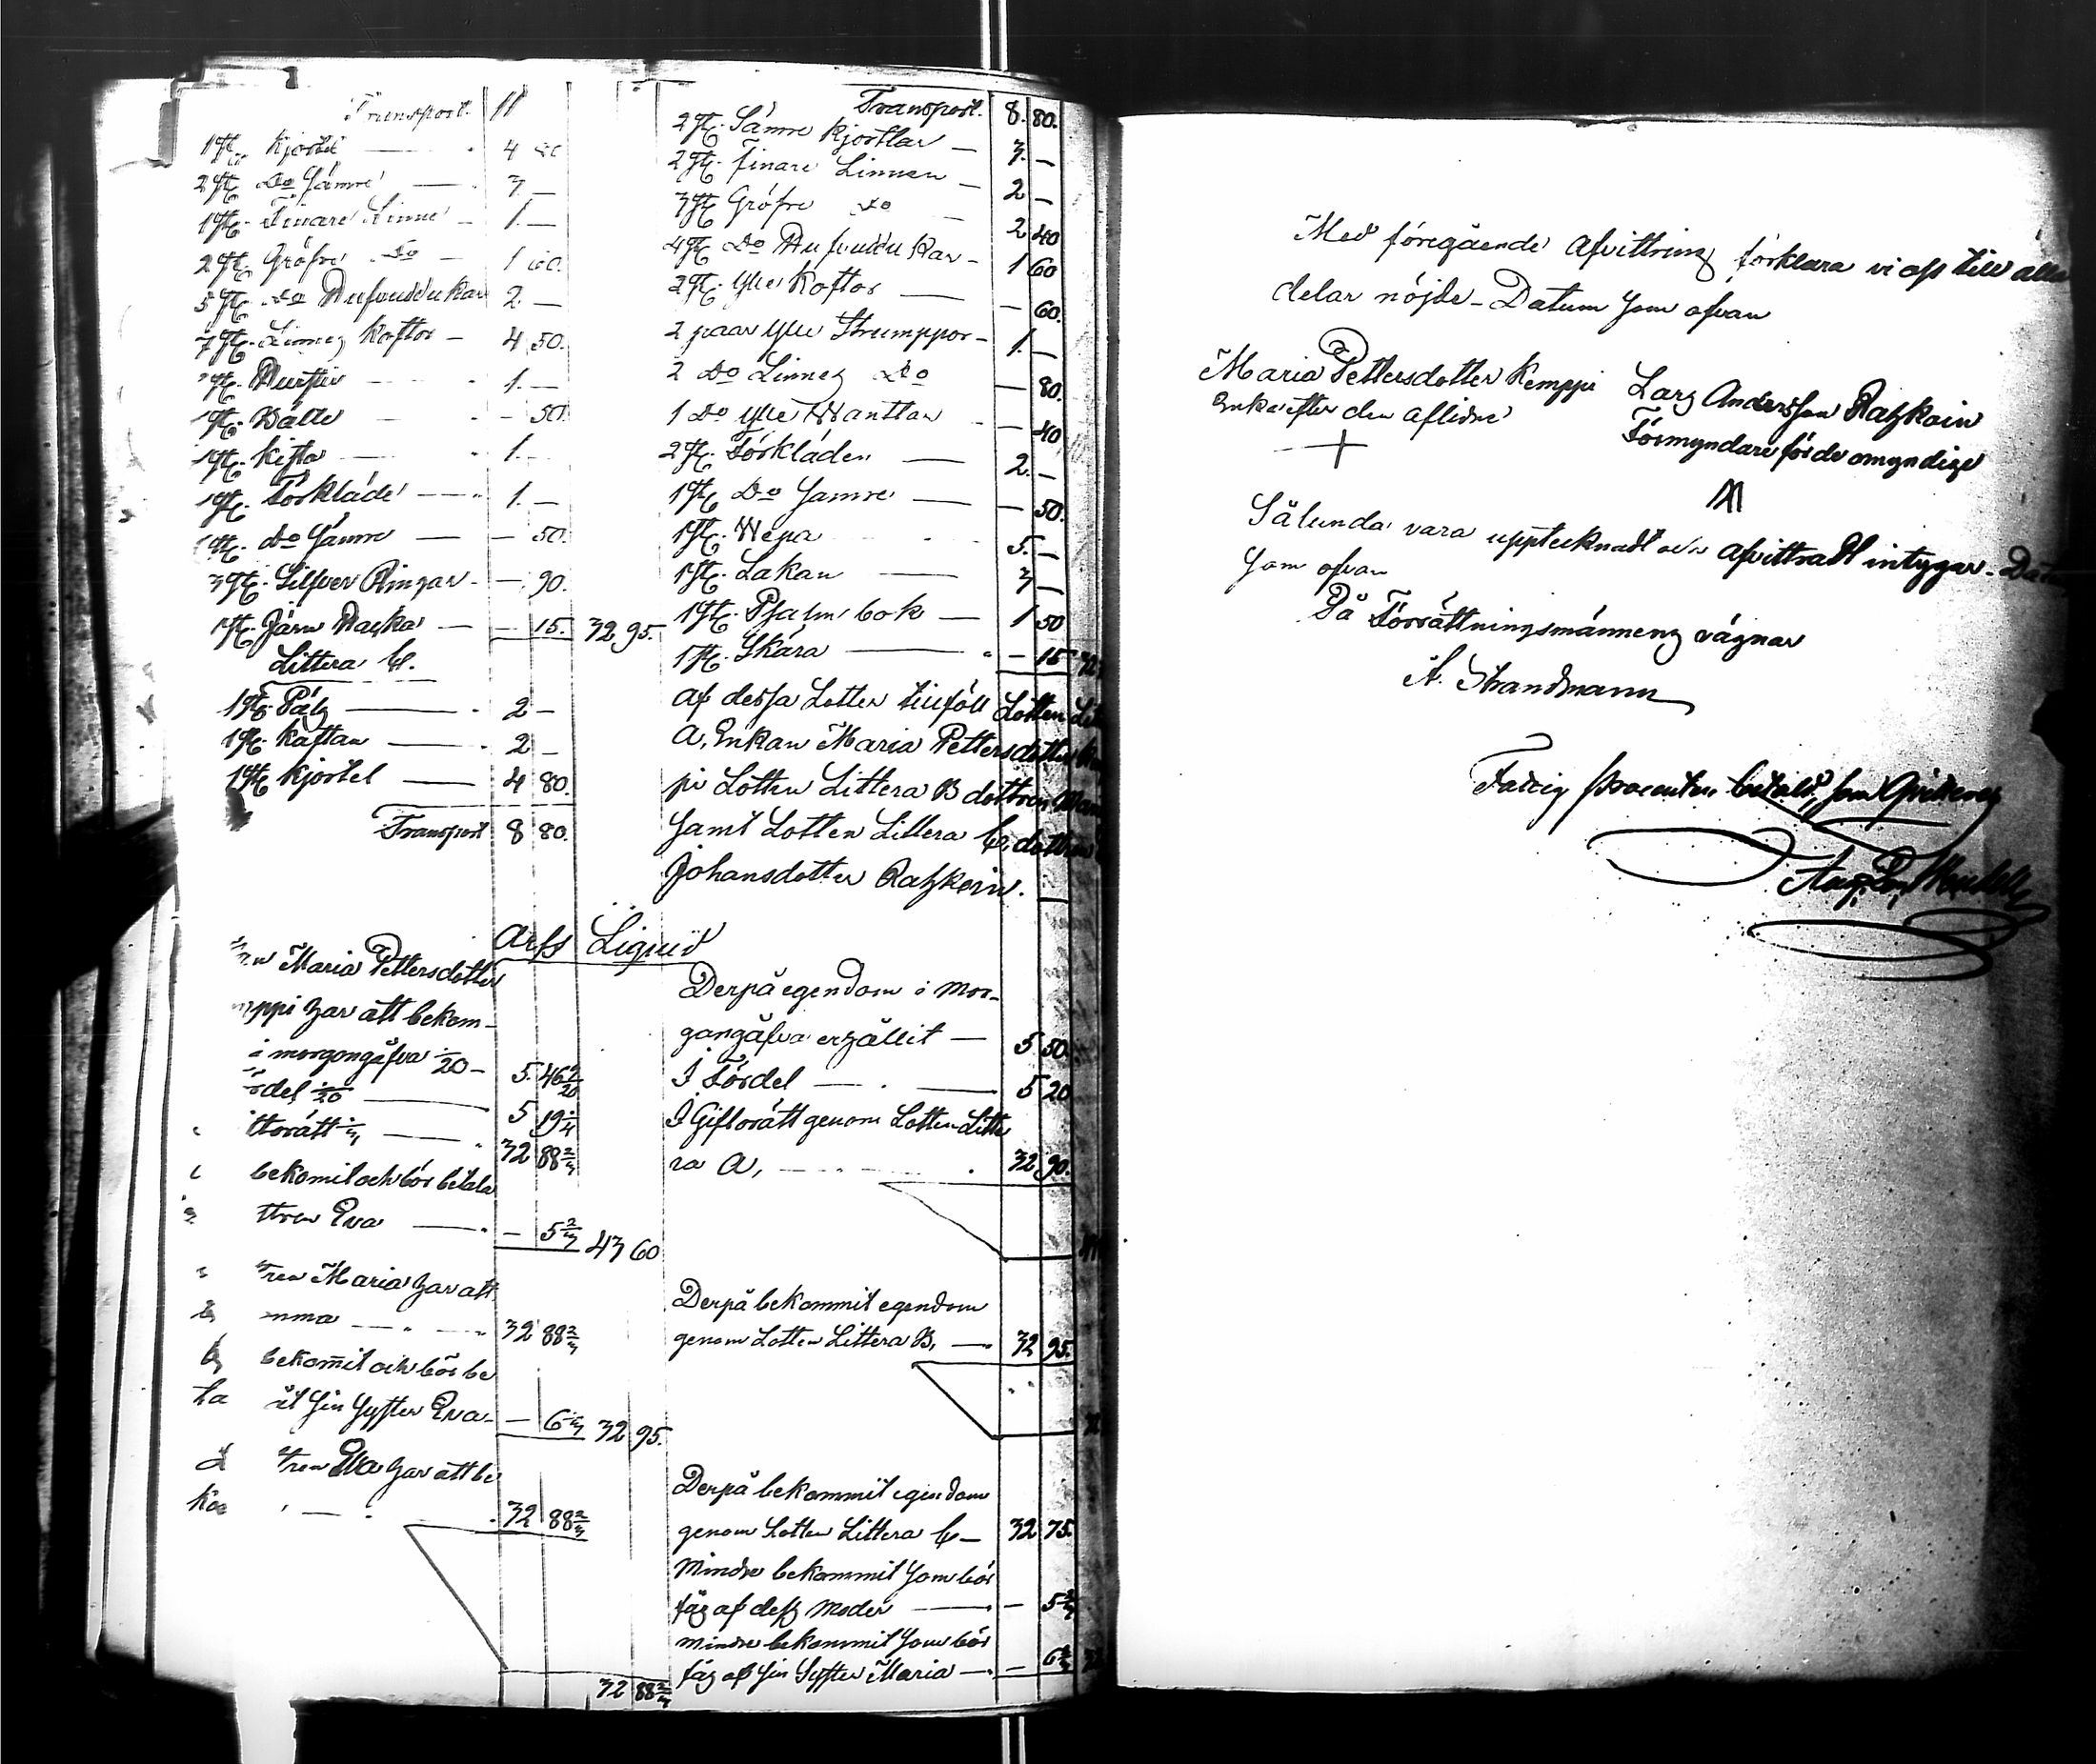 Transport. 11
1 st. Kjortel — 4 80
2 st. Do Sämre — 3 —
1 st. Finare Linne — 1 —
2 st. Gröfre Do — 1 60.
5 st. Do Hufvuddukar 2. —
7 st. Linnes Koftor — 4 50.
1. —
1 st. Bälte — — 50.
1 st. Kista — 1. —
1 st. Förkläde — 1. —
1 st. Do Sämre — — 50.
3 st. Silfver Ringar — — 90.
1 st. Järn — — 15. 32 95.
Littera C.
1 st. Päls — 2 —
1 st. Kaftan — 2 —
1 st. Kjortel — 4 80.
Transport 8 80.
Transport. 8. 80.
2 st. Sämre Kjortlar — 3. —
2 st. Finare Linnen — 2 —
3 st. Gröfre Do — 2 40
4 st. Do Hufvuddukar — 1 60
2 st. Ylle Koftor — — 60.
2 paar Ylle Strumppor — 1. —
2 Do Linnes Do — 80.
1 Do Ylle Wanttar — 40
2 st. Förkläden — 2. —
1 st. Do Samre — — 50.
1 st. Wepa 5. —
1 st. Lakan — 3 —
1 st. Psalmbok — 1 50
1 st. Skära — — 15
Af dessa Lotter tillföll Lotten Litt
A, Enkan Maria Pettersdotter Kem
pi Lotten Littera B dottren Mari
samt Lotten Littera C, dottren
Johansdotter Ratzkoin.
Arfs Liqvid
Maria Pettersdotter
mppi har att bekom-
i morgongåfva 1/20 — 5. 46 9/20
ördel 1/20 — 5 19 1/4
ttorätt 1/3 — 32 88 2/3
bekomit och bör betala
ttren Eva — — 5 2/3 43 60
tren Maria har att
mma — 32 88 2/3
bekomit och bör be
ta åt sin Syster Eva — — 6 1/3 32 95.
tren Eva har att be
kom . 32 88 2/3
32 88 2/3
Derpå egendom i mor-
gongåfva erhållit — 5 50.
I Fördel — 5 20
I Giftorätt genom Lotten Litte
ra A, — 32 90.
Derpå bekommit egendom
genom Lotten Littera B, — 32 95.
Derpå bekommit egendom
genom Lotten Littera C — 32 75.
Mindre bekommit som bör
fås af dess Moder — — 5 2/3
mindre bekommit som bör
fås af sin Syster Maria — — 6 1/3
Med föregående Afvittring förklara vi oss till alla
delar nöjde — Datum som ofvan
Maria Pettersdotter Kemppi
Enka efter den aflidne
Lars Andersson Ratzkoin
Förmyndare för de omyndige
Sålunda vara upptecknadt och afvittradt intygar — Datum
som ofvan
På Förrättningsmännens vägnar
A. Strandmann
Fattig procenten betald, som Qvitteras